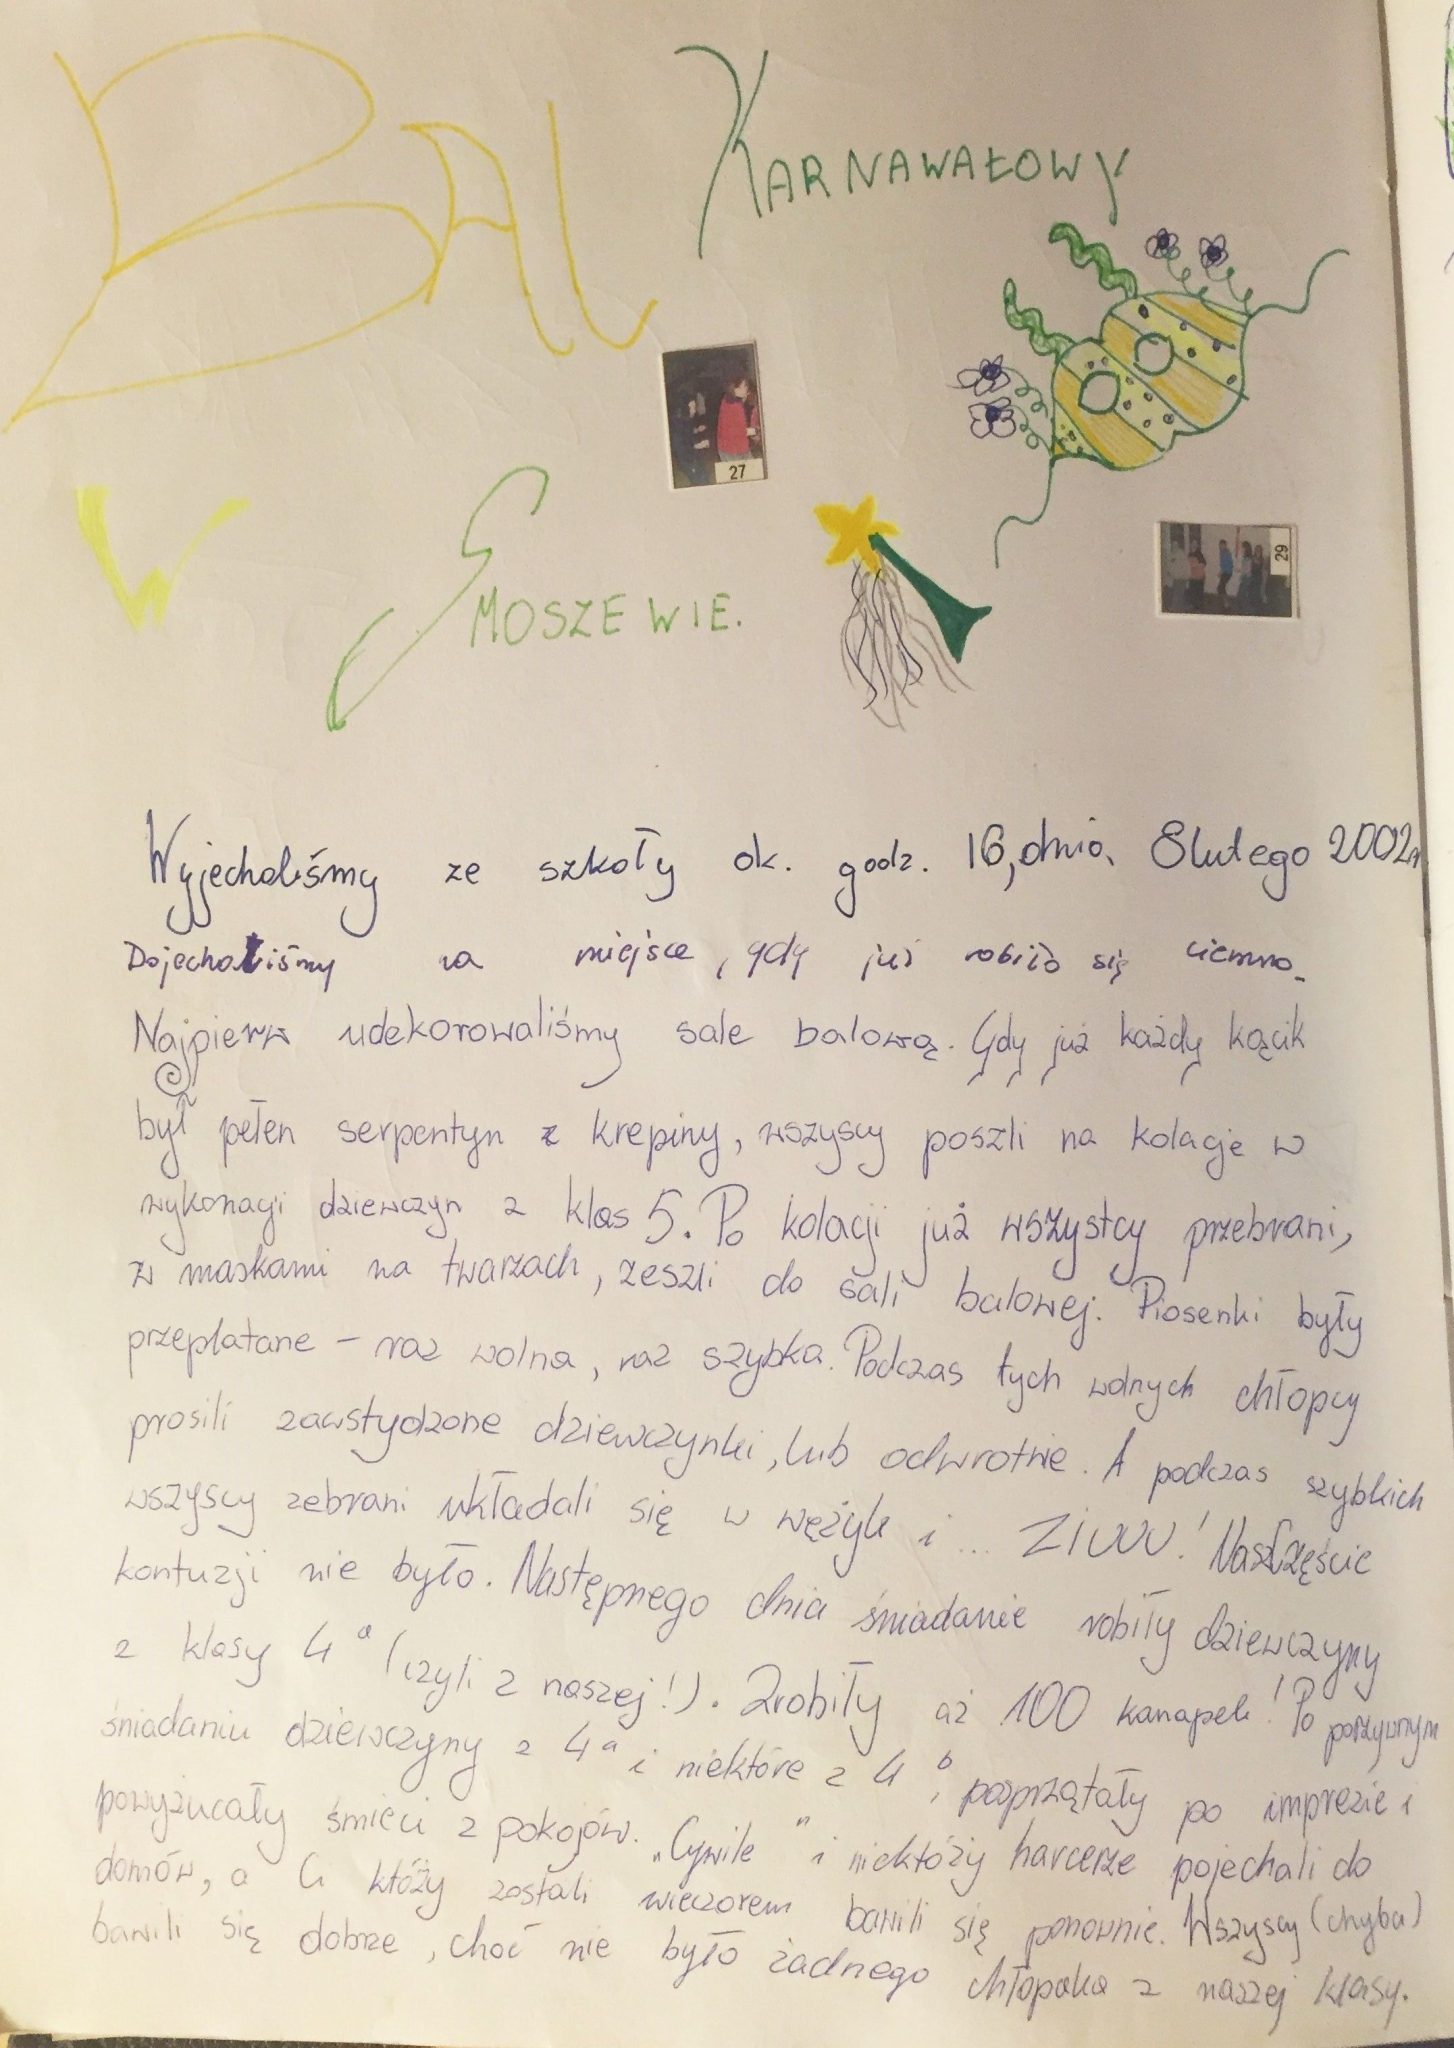 BAL KARNAWAŁOWY
27
29
W SMOSZEWIE.
Wyjechaliśmy ze szkoły ok. godz. 16, dnia 8 lutego 2002r
Dojechaliśmy na miejsce, gdy już robiło się ciemno.
Najpierw udekorowaliśmy sale balową. Gdy już każdy kącik
był pełen serpentyn z krepiny, wszyscy poszli na kolacje w
wykonagi dziewczyn z klas 5. Po kolacji już wszystcy przebrani,
z maskami na twarzach, zeszli do sali balowej. Piosenki były
przeplatane - raz wolna, raz szybka. Podczas tych wolnych chłopcy
prosili zawstydzone dziewczynki, lub odwrotnie. A podczas szybkich
wszyscy zebrani układali się w wężyk i ... ZIUUU! Naszczęście
kontuzji nie było. Następnego dnia śniadanie robiły dziewczyny
z klasy 4 a (czyli z naszej!). Zrobiły aż 100 kanapek! Po pożywnym
śniadaniu dziewczyny z 4 a i niektóre z 4 b, posprzątały po imprezie i
powyżucały śmieci z pokojów. „Cywile" i niektóży harcerze pojechali do
domów, a Ci któży zostali wieczorem bawili się ponownie. Wszyscy (chyba)
bawili się dobrze, choć nie było żadnego chłopaka z naszej klasy.